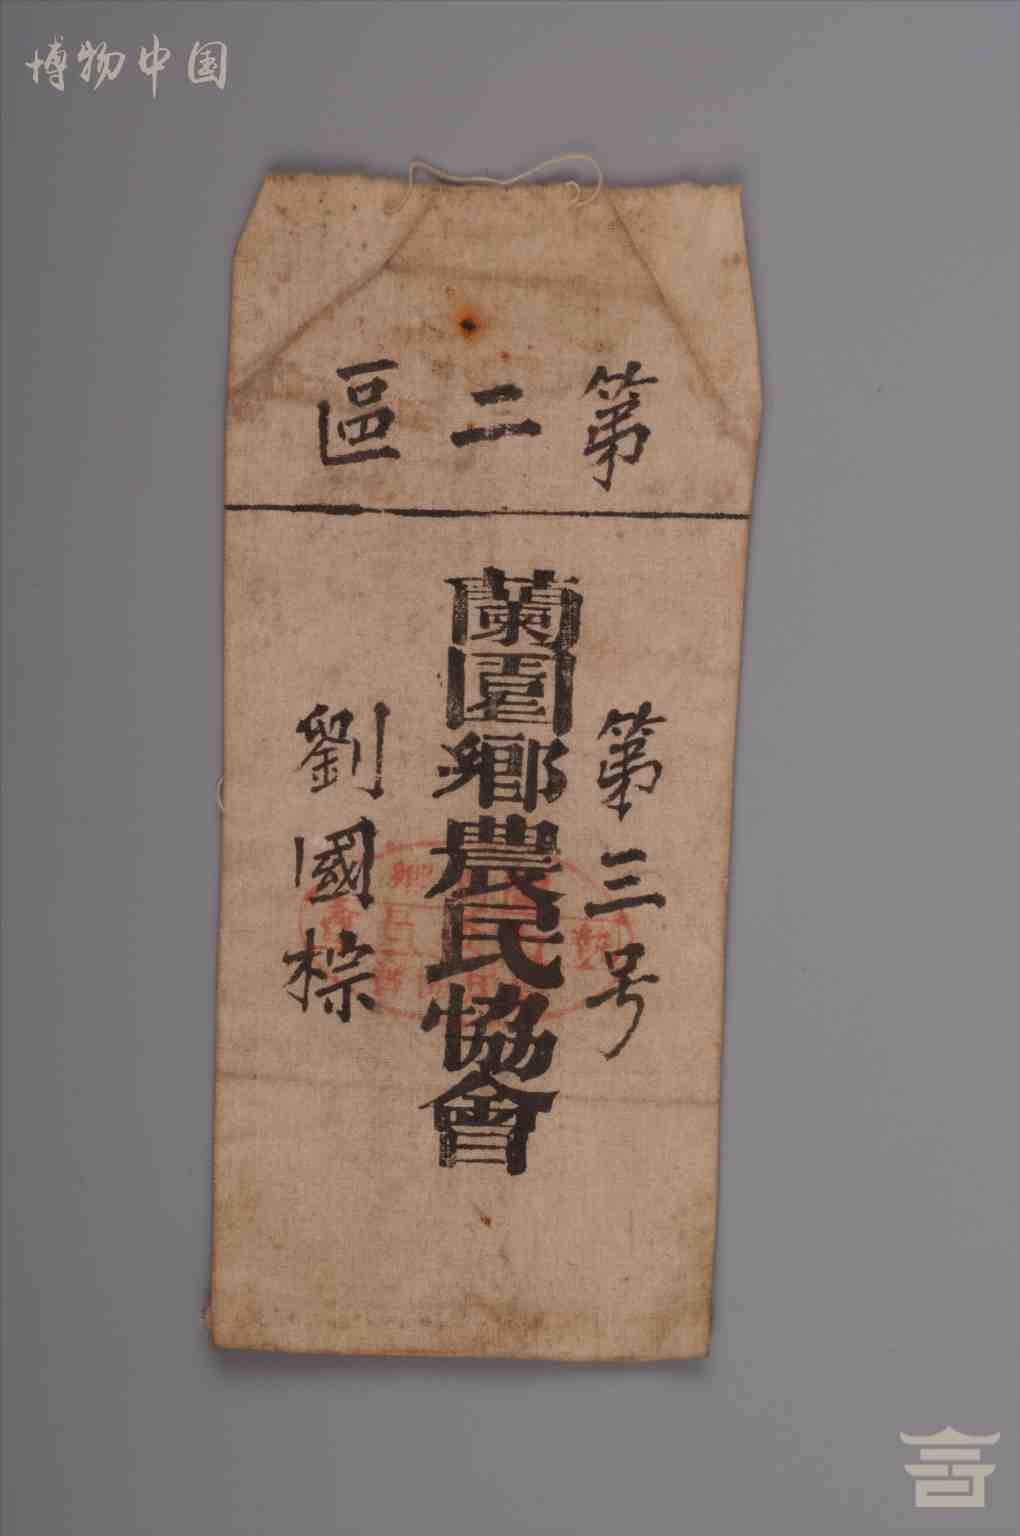 博物中国
第二區
第三号
蘭園鄉農民協會
劉國棕